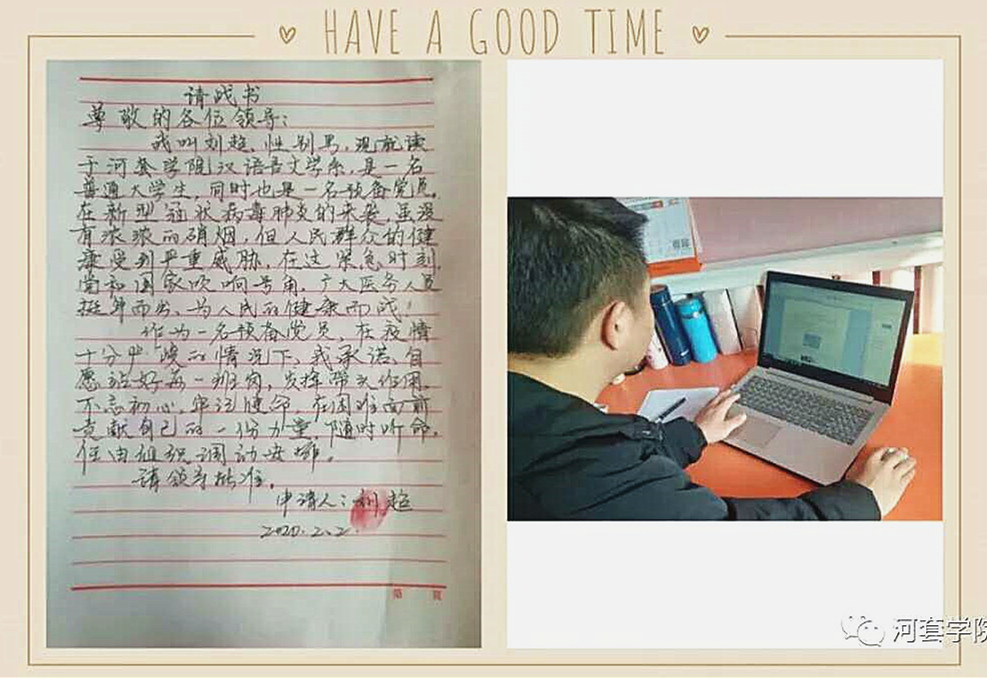 HAVE A GOOD TIME
请战书
尊敬的各位领导:
我叫刘超,性别男,现就读
于河套学院汉语言文学系,是一名
普通大学生,同时也是一名预备党员,
在新型冠状病毒肺炎的来袭,虽没
有浓浓的硝烟,但人民群众的健
康受到严重威胁,在这紧急时刻
党和国家吹响号角,广大医务人员
挺身而出,为人民的健康而战!
作为一名预备党员,在疫情
十分严峻的情况下,我承诺,自
愿站好每一班岗,发挥带头作用,
不忘初心,牢记使命,在困难面前
贡献自己的一份力量,随时听命,
任由组织调动安排。
请领导批准。
申请人:刘超
2020.2.2
第 页
河套学院